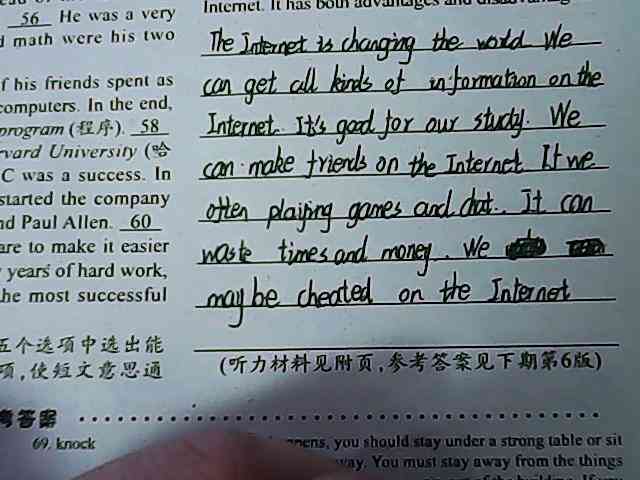 Internet. It has both advantages and
56 He was a very
d math were his two
The Internet is changing the world We
can get all kinds of information on the
Internet. It's good for our study. We
can make friends on the Internet If we
often plaijing games and chat. It can
waste times and money. We
may be cheated on the Internet
f his friends spent as
computers. In the end,
program (程序). 58
rvard University (哈
C was a success. In
started the company
nd Paul Allen. 60
are to make it easier
years of hard work,
he most successful
五个选项中选出能
项,使短文意思通
(听力材料见附页,参考答案见下期第6版)
考答案
69. knock
ppens, you should stay under a strong table or sit
way. You must stay away from the things